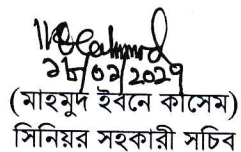 ১৮/০২/২০২১
(মাহমুদ ইবনে কাসেম)
সিনিয়র সহকারী সচিব